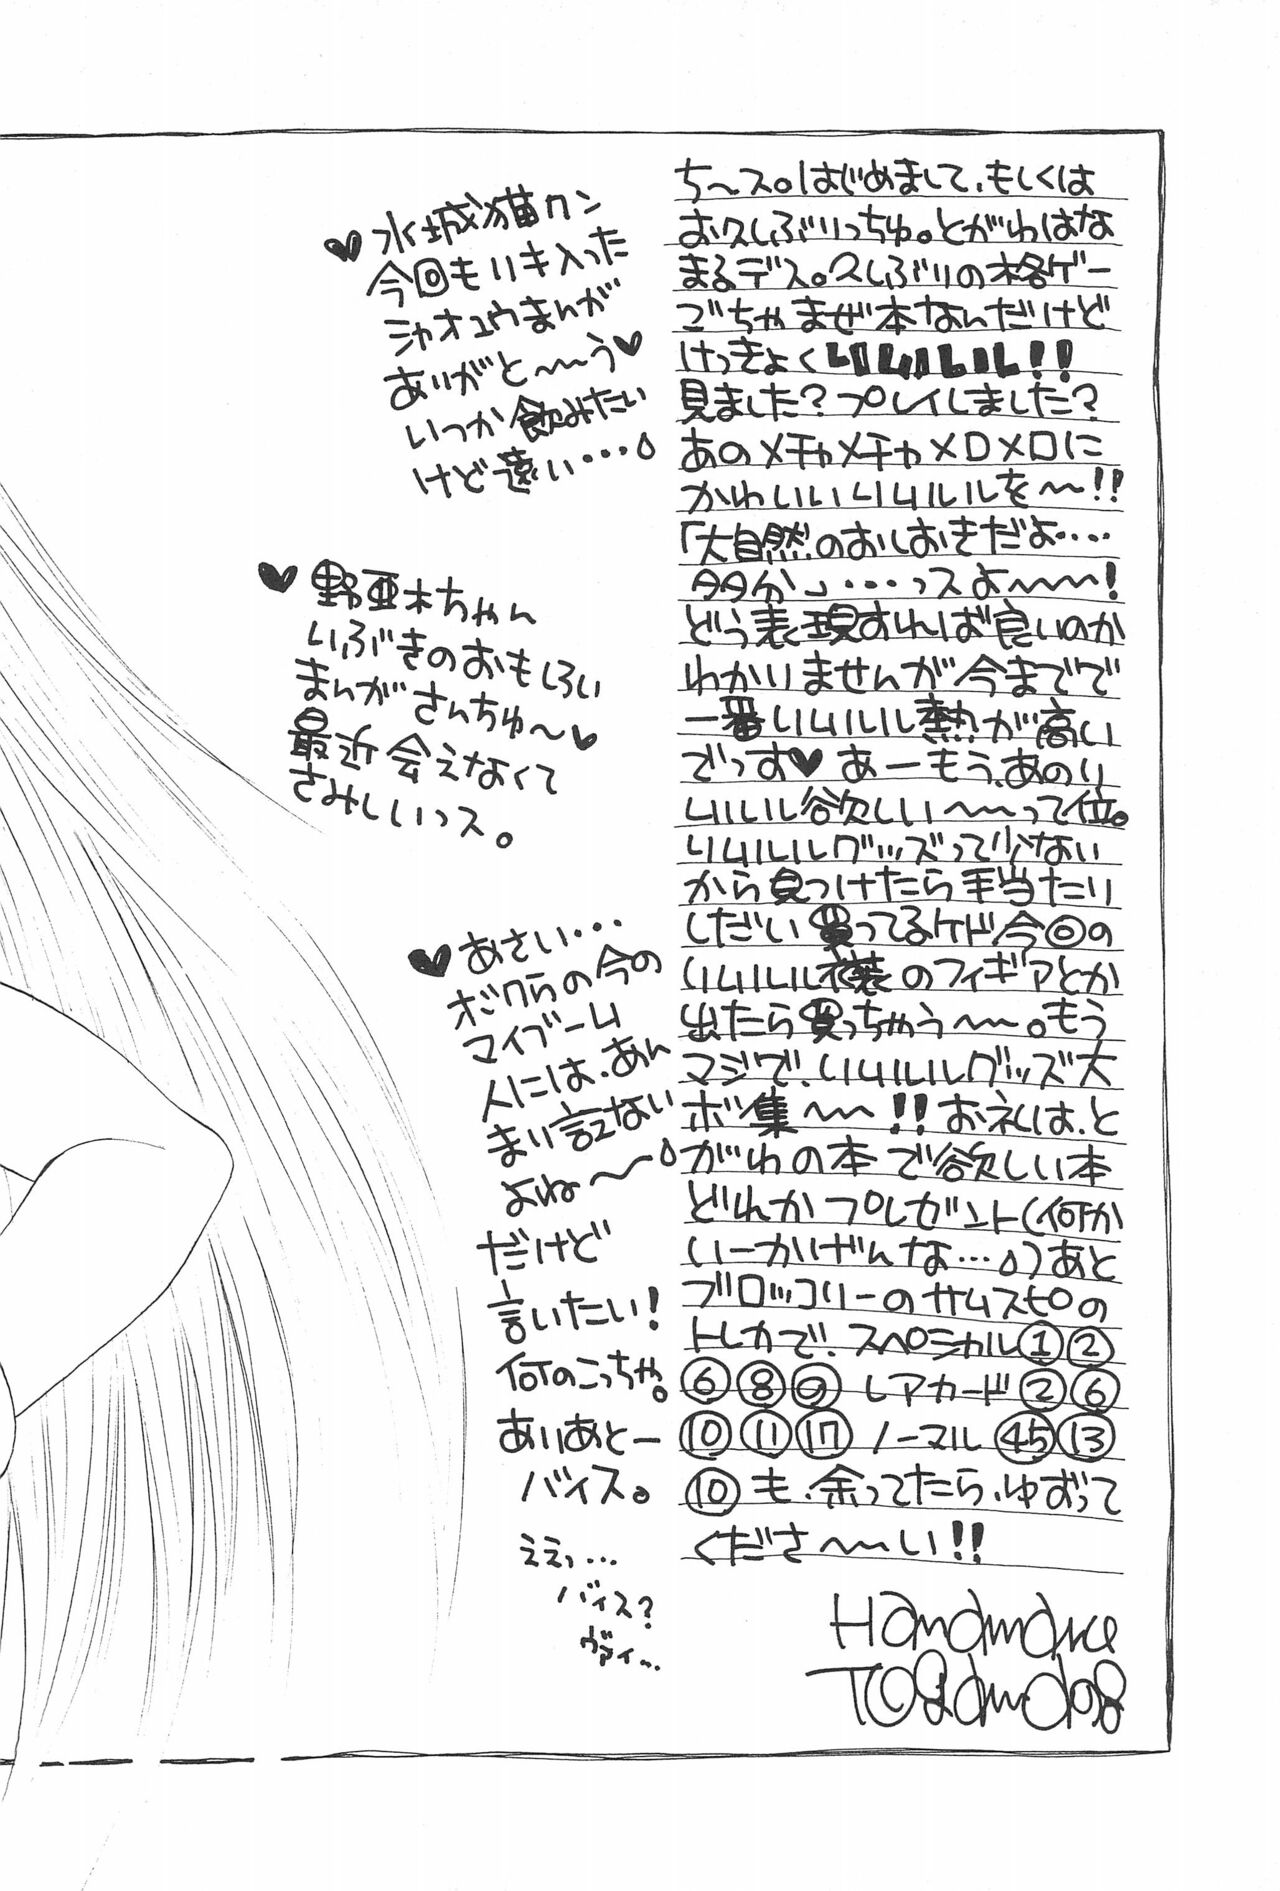 ち〜ス。はじめまして、もしくは
お久しぶりっちゅ。とがわはな
まるデス。久しぶりの格ゲー
ごちゃまぜ本なんだけど
けっきょくリムルル!!
見ました?プレイしました?
あのメチャメチャメロメロに
かわいいリムルルを〜!!
「大自然のおしおきだよ・・・・
多分」・・・っスよ〜〜!
どう表現すれば良いのか
わかりませんが今までで
一番リムルル熱が高い
でっす♥あーもう、あのリ
ムルル欲しい〜〜って位。
リムルルグッズって少ない
から見つけたら手当たり
しだい買ってるケド今回の
リムルル衣装のフィギアとか
出たら買っちゃう〜〜。もう
マジで、リムルルグッズ大
ボ集〜〜!!お礼は、と
がわの本で欲しい本
どれかプレゼント(何か
いーかげんな…)あと
ブロッコリーのサムスピの
トレカで、スペシャル①②
⑥⑧⑨ レアカード②⑥
⑩⑪⑰ ノーマル㊺⑬
⑩も、余ってたら、ゆずって
くださ〜〜い!!
♥水城猫クン
今回もリキ入った
シャオユウまんが
ありがと〜〜う♥
いつか飲みたい
けど遠い・・・
♥野亜木ちゃん
いぶきのおもしろい
まんがさんちゅ〜♥
最近会えなくて
さみしいっス。
♥あさい・・・
ボクらの今の
マイブーム
人には、あん
まり言えない
よね〜〜
だけど
言いたい!
何のこっちゃ。
あいあとー
バイス。
ええっ…
バイス?
ヴァイ〜